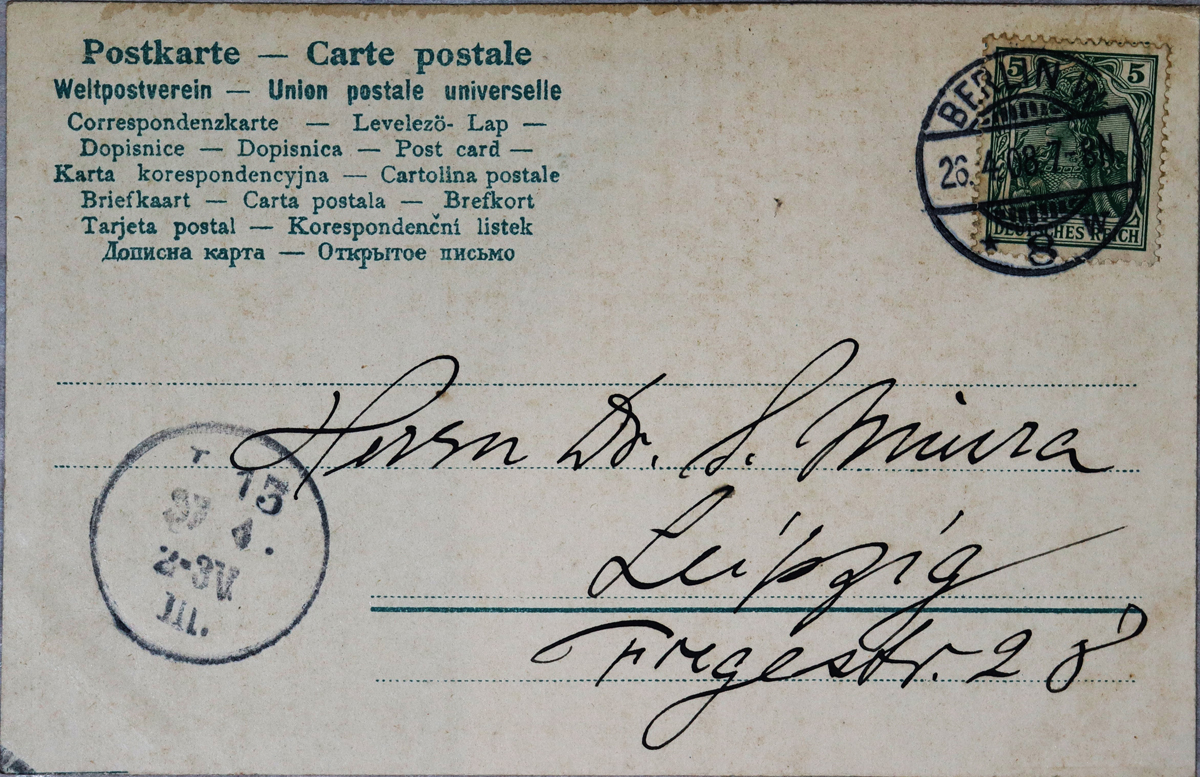 Postkarte — Carte postale
Weltpostverein — Union postale universelle
Correspondenzkarte — Levelező- Lap —
Dopisnice — Dopisnica — Post card —
Karta korespondencyjna — Cartolina postale
Briefkaart — Carta postala — Brefkort
Tarjeta postal — Korespondenční listek
Дописна карта — Открытое письмо
5 5
DEUTSCHES REICH
BERLIN W
26.4.08.7-8N.
* 8 W
Herrn Dr. S. Miura
Leipzig
Fregestr. 28
13
4.
2-3V
III.